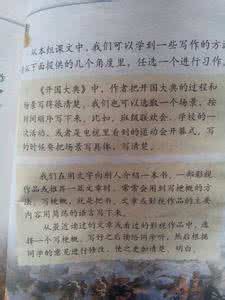 从本组课文中，我们可以学到一些写作的方
下面提供的几个角度里，任选一个进行习作。
《开国大典》中，作者把开国大典的过程和
场景写得很清楚，我们也可以选取一个场景，按
时间顺序写下来。比如，班级联欢会、学校的一
次活动，或者是电视里看到的运动会开幕式。写
的时候要把场景写具体，写清楚。
我们在用文字向别人介绍一本书、一部影视
作品或推荐一篇文章时，常常会用到写梗概的方
法。写梗概，就是把书、文章或影视作品的主要
内容用简练的语言写下来。
从最近读过的文章或看过的影视作品中，选
择一个写梗概。写好之后读给同学听，然后根据
同学的意见进行修改，使之更加清楚、明白。